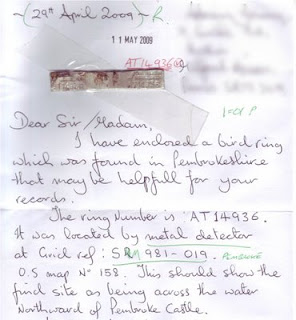 (29th April 2009) R.
11 MAY 2009
AT14936
Dear Sir/Madam,
I have enclosed a bird ring
which was found in Pembrokeshire
that may be helpfull for your
records.
The ring Number is AT14936.
It was located by metal detector
at Grid ref: SM 981-019. PEMBROKE
O.S map Nº 158. This should show the
find site as being across the water
Northward of Pembroke Castle.